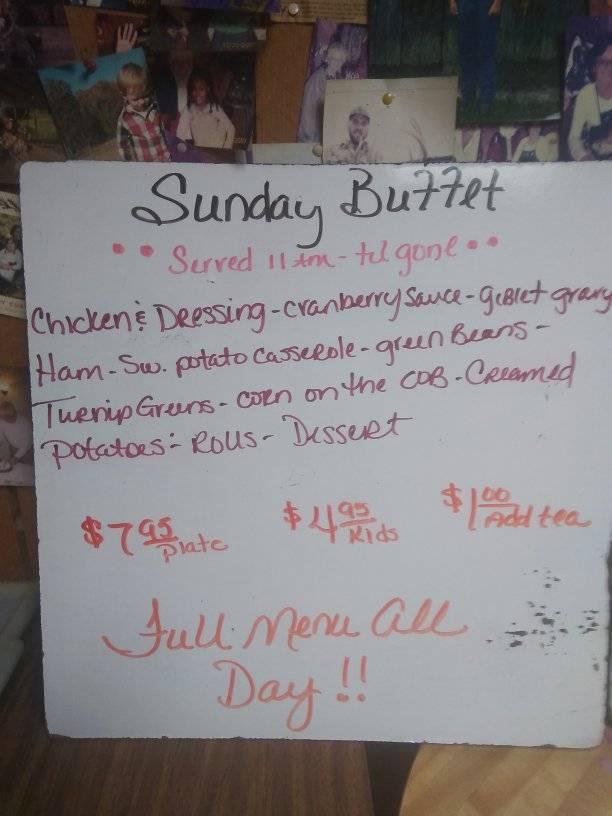 Sunday Buffet
•• Served 11 am - til gone ••
Chicken & Dressing - cranberry sauce - giblet gravy
Ham - Sw. potato casserole - green Beans -
Turnip Greens - corn on the COB - Creamed
potatoes - Rolls - Dessert
$7 95 plate $4 95 Kids $1 00 Add tea
Full Menu All
Day!!